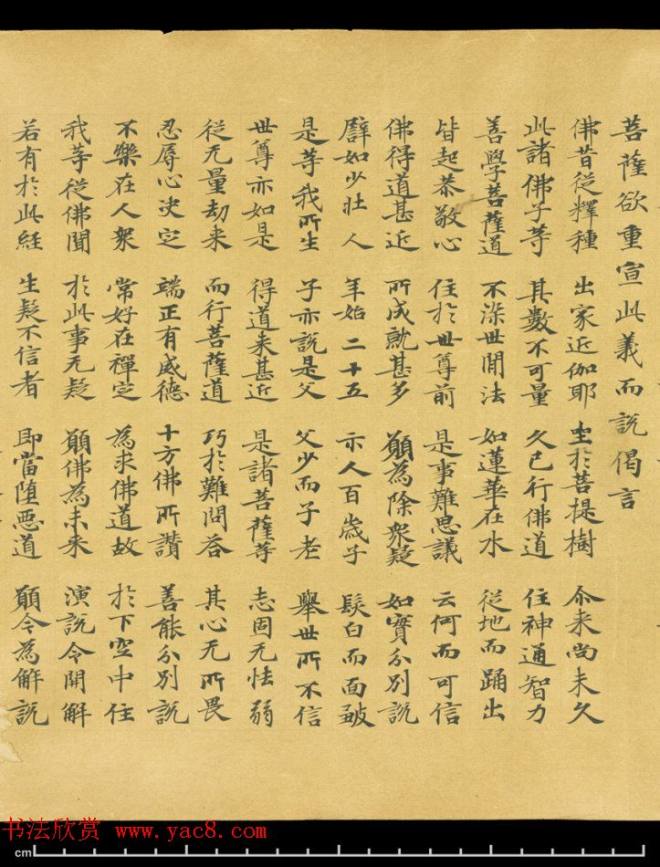 菩薩欲重宣此義而說偈言
佛昔從釋種 出家近伽耶 坐於菩提樹 尒来尚未久
此諸佛子等 其數不可量 久已行佛道 住神通智力
善學菩薩道 不染世閒法 如蓮華在水 從地而踊出
皆起恭敬心 住於世尊前 是事難思議 云何而可信
佛得道甚近 所成就甚多 願為除衆疑 如實分別說
譬如少壯人 年始二十五 示人百歲子 髮白而面皺
是等我所生 子亦說是父 父少而子老 舉世所不信
世尊亦如是 得道来甚近 是諸菩薩等 志固无怯弱
從无量劫来 而行菩薩道 巧於難問答 其心无所畏
忍辱心決定 端正有威德 十方佛所讚 善能分別說
不樂在人衆 常好在禪定 為求佛道故 於下空中住
我等從佛聞 於此事无疑 願佛為未来 演說令開解
若有於此経 生疑不信者 即當堕惡道 願今為解說
书法欣赏 www.yac8.com
cm